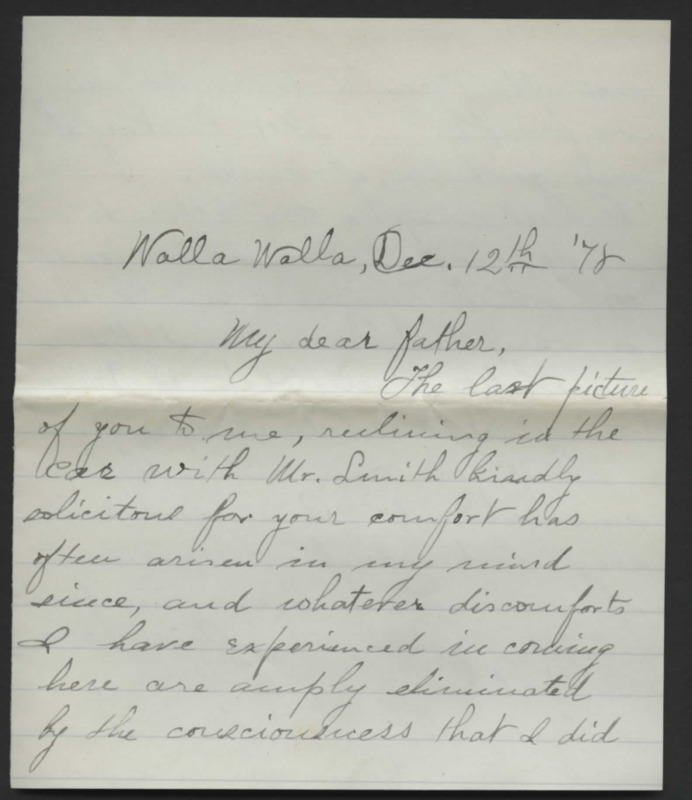 Walla Walla, Dec. 12th '78
My dear father,
The last picture
of you to me, reclining in the
car with Mr. Smith kindly
solicitous for your comfort has
often arisen in my mind
since, and whatever discomforts
I have experienced in coming
here are amply eliminated
by the consciousness that I did